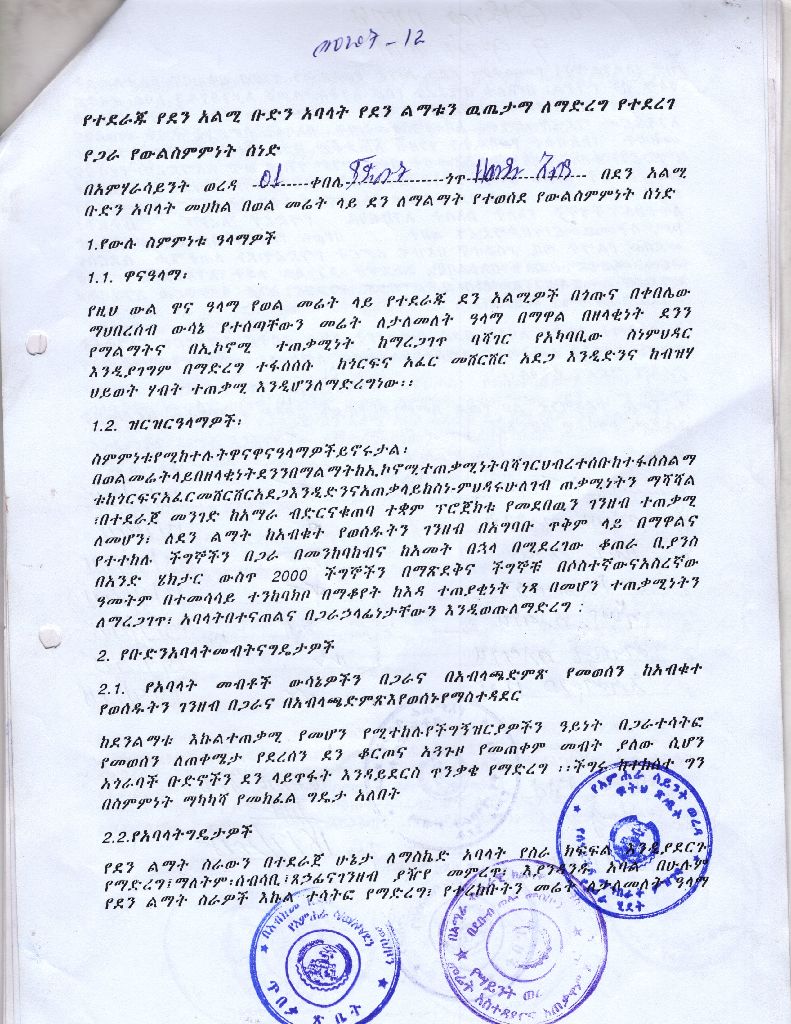 - 12
የተደራጁ የደን አልሚ ቡድን አባላት የደን ልማቱን ዉጤታማ ለማድረግ የተደረገ
የጋራ የውልስምምነት ሰነድ
በአምሃራሳይንት ወረዳ 01 ቀበሌ ጎጥ በደን አልሚ
ቡድን አባላት መሀከል በወል መሬት ላይ ደን ለማልማት የተወሰደ የውልስምምነት ሰነድ
1.የውሉ ስምምነቱ ዓላማዎች
1.1. ዋናዓላማ፡
የዚህ ውል ዋና ዓላማ የወል መሬት ላይ የተደራጁ ደን አልሚዎች በጎጡና በቀበሌው
ማህበረሰብ ውሳኔ የተሰጣቸውን መሬት ለታለመለት ዓላማ በማዋል በዘላቂነት ደንን
የማልማትና በኢኮኖሚ ተጠቃሚነት ከማረጋገጥ ባሻገር የአካባቢው ስነምህዳር
እንዲያገግም በማድረግ ተፋሰሱ ከጎርፍና አፈር መሸርሸር አደጋ እንዲድንና ከብዝሃ
ህይወት ሃብት ተጠቃሚ እንዲሆንለማድረግነው፡፡
1.2. ዝርዝርዓላማዎች፡
ስምምነቱየሚከተሉትዋናዋናዓላማዎችይኖሩታል፡
በወልመሬትላይበዘላቂነትደንንበማልማትከኢኮኖሚተጠቃሚነትባሻገርህብረተሰቡከተፋሰስልማ
ቱከጎርፍናአፈርመሸርሸርአደጋእንዲድንናአጠቃላይከስነ-ምህዳሩሁለገብ ጠቃሚነትን ማሻሻል
፣በተደራጀ መንገድ ከአማራ ብድርናቁጠባ ተቋም ፕሮጀክቱ የመደበዉን ገንዘብ ተጠቃሚ
ለመሆን፣ ለደን ልማት ከአብቁተ የወሰዱትን ገንዘብ በአግባቡ ጥቅም ላይ በማዋልና
የተተከሉ ችግኞችን በጋራ በመንከባከብና ከአመት በኋላ በሚደረገው ቆጠራ ቢያንስ
በአንድ ሄክታር ውስጥ 2000 ችግኞችን በማጽደቅና ችግኞቹ በሶስተኛውናአስረኛው
ዓመትም በተመሳሳይ ተንከባክቦ በማቆየት ከእዳ ተጠያቂነት ነጻ በመሆን ተጠቃሚነትን
ለማረጋገጥ፣ አባላትበተናጠልና በጋራኃላፊነታቸውን እንዲወጡለማድረግ ፡
2. የቡድንአባላትመብትናግዴታዎች
2.1. የአባላት መብቶች ውሳኔዎችን በጋራና በአብላጫድምጽ የመወሰን ከአብቁተ
የወሰዱትን ገንዘብ በጋራና በአብላጫድምጽእየወሰኑየማስተዳደር
ከደንልማቱ እኩልተጠቃሚ የመሆን የሚተከሉየችግኝዝርያዎችን ዓይነት በጋራተሳትፎ
የመወሰን ለጠቀሜታ የደረሰን ደን ቆርጦና አጓጉዞ የመጠቀም መብት ያለው ሲሆን
አጎራባች ቡድኖችን ደን ላይጥፋት እንዳይደርስ ጥንቃቄ የማድረግ ፡፡ችግሩ ከተከሰተ ግን
በስምምነት ማካካሻ የመክፈል ግዴታ አለበት
2.2.የአባላትግዴታዎች
የደን ልማት ስራውን በተደራጀ ሁኔታ ለማስኬድ አባላት የስራ ክፍፍል እንዲያደርጉ
የማድረግ፣ማለትም፡ሰብሳቢ፣ጸኃፊናገንዘብ ያዥየ መምረጥ፣ እያንዳንዱ አባል በሁሉም
የደን ልማት ስራዎች እኩል ተሳትፎ የማድረግ፣ የተረከቡትን መሬት ለታለመለት ዓላማ
የአምሐራ ሳይንት ወረዳ
ፍትህ ጽ/ቤት